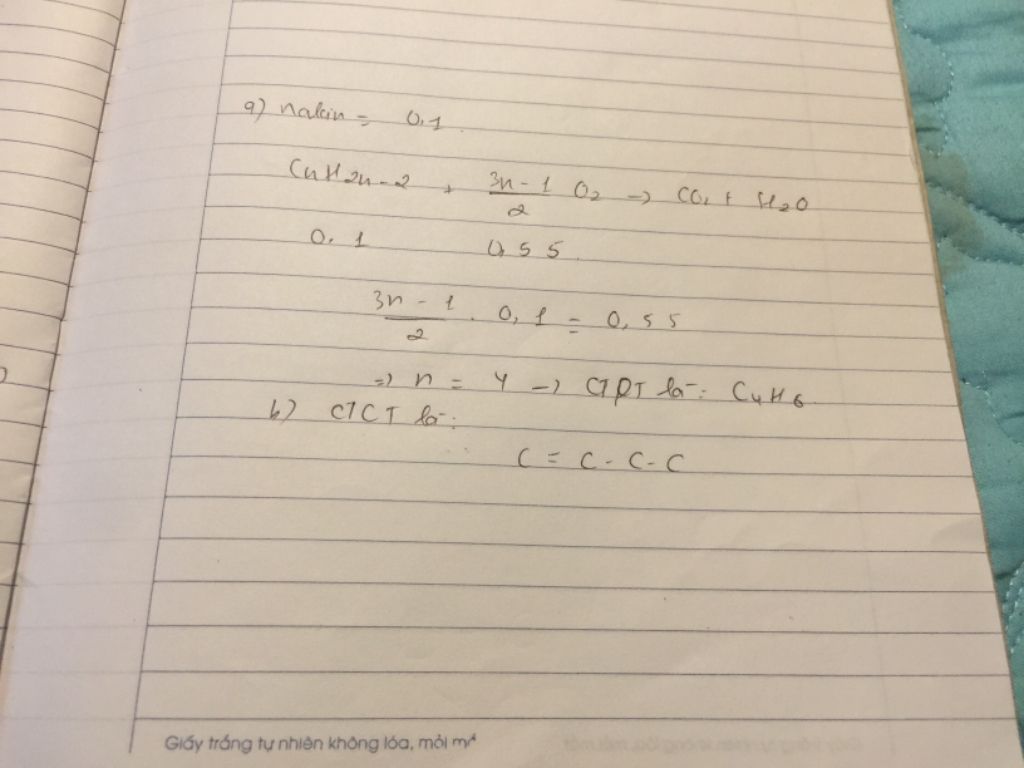 a) nakin = 0,1.
CnH2n-2 + 3n-1/2 O2 → CO2 + H2O
0,1 0,55.
3n-1/2 . 0,1 = 0,55
=> n = 4 → CTPT là: C4H6
b) CTCT là:
C = C - C - C
Giấy trắng tự nhiên không lóa, mỏi mắt